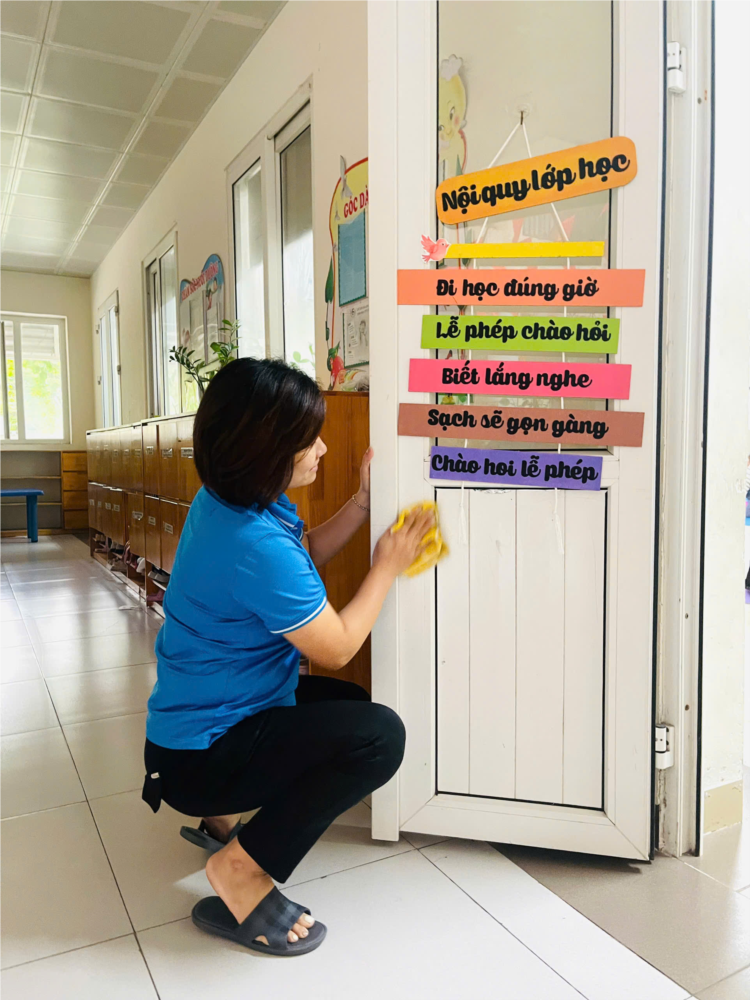 GÓC
Nội quy lớp học
Đi học đúng giờ
Lễ phép chào hỏi
Biết lắng nghe
Sạch sẽ gọn gàng
Chào hoi lễ phép